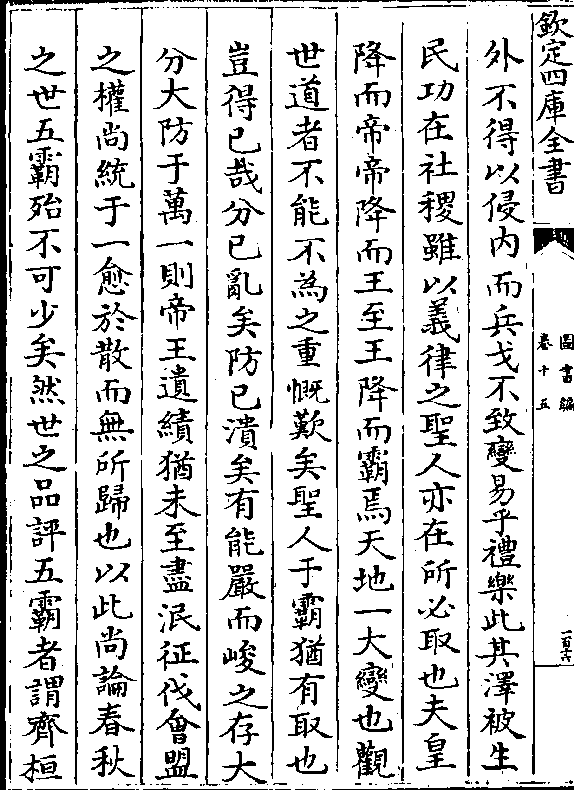 欽定四庫全書
圖書編
卷十五
一百六
外不得以侵內而兵戈不致變易乎禮樂此其澤被生
民功在社稷雖以義律之聖人亦在所必取也夫皇
降而帝帝降而王至王降而霸焉天地一大變也觀
世道者不能不為之重慨歎矣聖人于霸猶有取也
豈得已哉分已亂矣防已潰矣有能嚴而峻之存大
分大防于萬一則帝王遺績猶未至盡泯征伐會盟
之權尚統于一愈於散而無所歸也以此尚論春秋
之世五霸殆不可少矣然世之品評五霸者謂齊桓